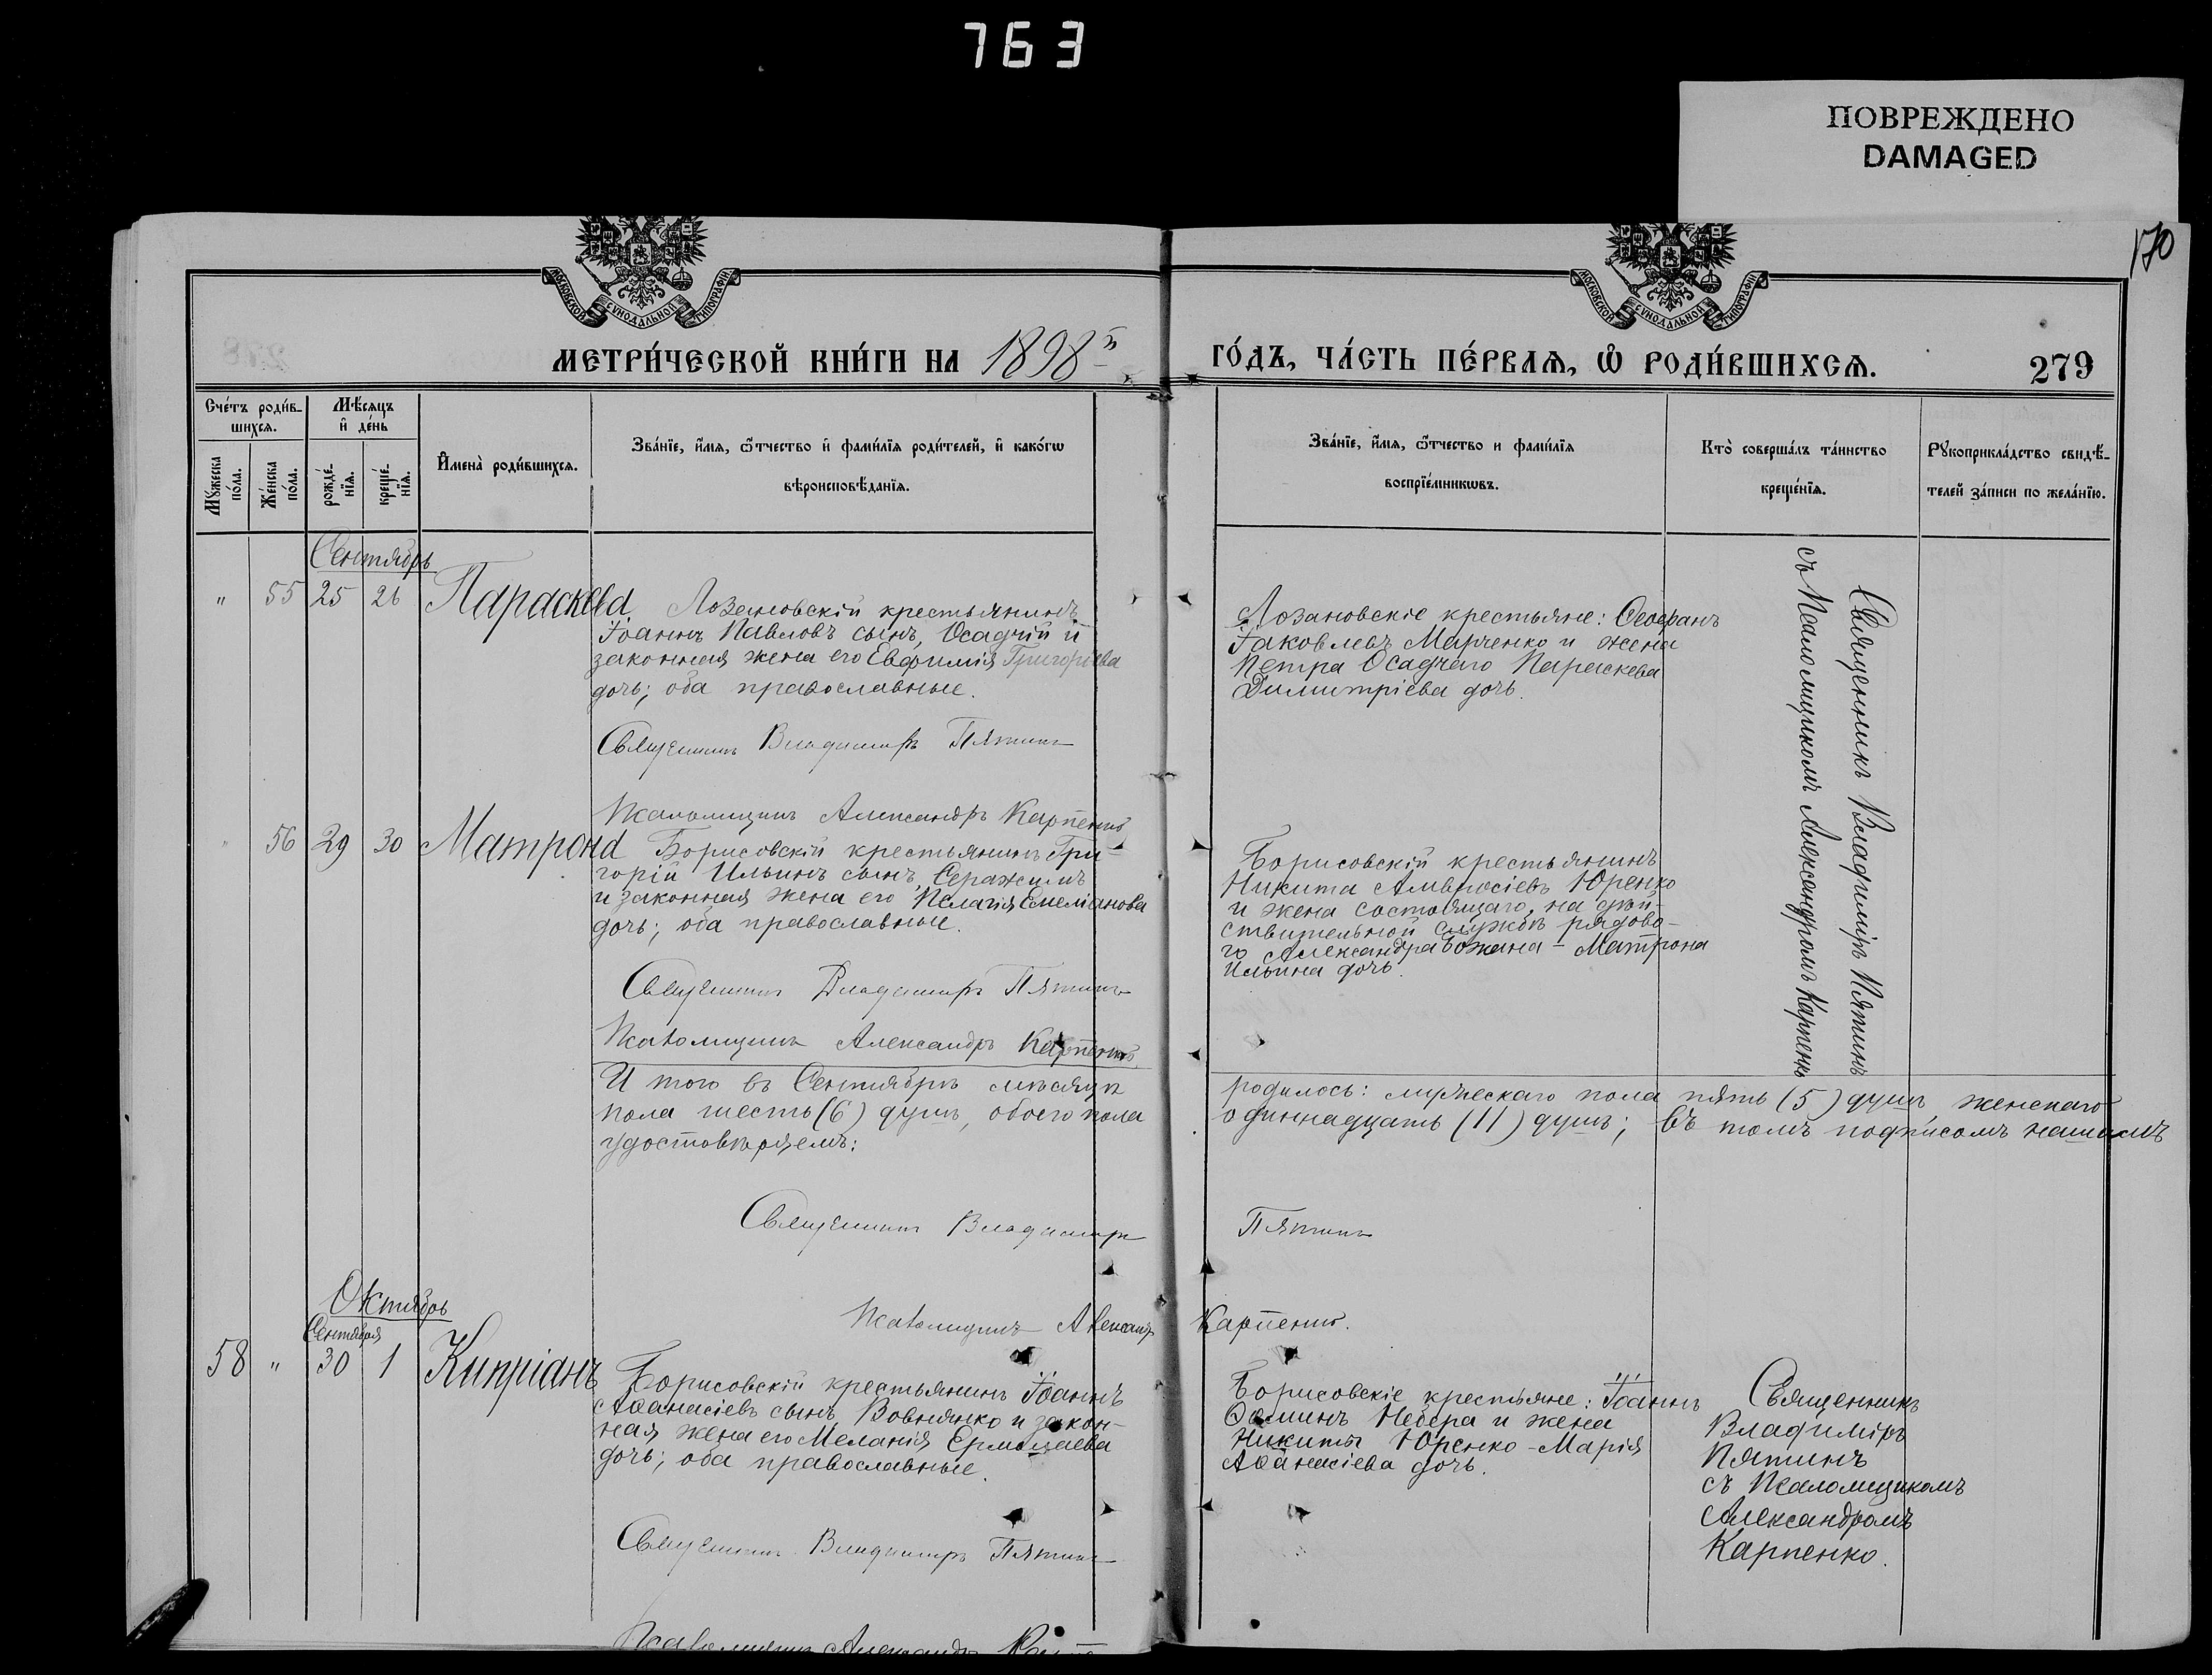 763
ПОВРЕЖДЕНО
DAMAGED
170
МОСКОВСКОЙ СѴНОДАЛЬНОЙ ТИПОГРАФІИ
МОСКОВСКОЙ СѴНОДАЛЬНОЙ ТИПОГРАФІИ
МЕТРИ́ЧЕСКОЙ КНИ́ГИ НА 1898й
ГО́ДЪ, ЧА́СТЬ ПЕ́РВАѦ, Ѡ РОДИ́ВШИХСѦ.
279
Сче́тъ роди́в-
шихсѧ.
Мꙋжеска
по́ла.
Же́нска
по́ла.
Мѣ́сѧцъ
и҆ де́нь
рожде́-
нїѧ.
креще́-
нїѧ.
И҆мена̀ роди́вшихсѧ.
Зва́нїе, и҆́мѧ, ѻ҆́тчество и҆ фами́лїѧ роди́телей, и҆ како́гѡ
вѣроисповѣ́данїѧ.
Зва́нїе, и҆́мѧ, ѻ҆́тчество и фами́лїѧ
воспрїе́мникѡвъ.
Кто̀ соверша́лъ та́инство
креще́нїѧ.
Рꙋкоприкла́дство свидѣ́-
телей за́писи по жела́нїю.
Сентябрь
" 55 25 26 Параскева
Лозановскій крестьянинъ
Іоаннъ Павловъ сынъ, Осадчій и
законная жена его Евфимія Григорьева
дочь; оба православные.
Священникъ Владимиръ Пятинъ
Псаломщикъ Александръ Карпенко
Лозановскіе крестьяне: Ѳеофанъ
Іаковлевъ Марченко и жена
Петра Осадчаго Параскева
Димитріева дочь.
Священникъ Владиміръ Пятинъ
съ Псаломщикомъ Александромъ Карпенко
" 56 29 30 Матрона
Борисовскій крестьянинъ Гри-
горій Ильинъ сынъ, Серажимъ
и законная жена его Пелагія Емеліанова
дочь; оба православные.
Священникъ Владимиръ Пятинъ
Псаломщикъ Александръ Карпенко
Борисовскій крестьянинъ
Никита Амвросіевъ Юренко
и жена состоящаго, на дѣй-
ствительной службѣ рядово-
го Александра Божана - Матрона
Ильина дочь.
И того въ Сентябрѣ мѣсяцѣ родилось: мужескаго пола пять (5) душъ, женскаго
пола шесть (6) душъ, обоего пола одиннадцать (11) душъ; въ томъ подписомъ нашимъ
удостовѣряемъ:
Священникъ Владимиръ Пятинъ
Псаломщикъ Александръ Карпенко.
Октябрь
Сентября
58 " 30 1 Кипріанъ
Борисовскій крестьянинъ Іоаннъ
Аѳанасіевъ сынъ, Вовнянко и закон-
ная жена его Меланія Ермолаева
дочь; оба православные.
Священникъ Владимиръ Пятинъ
Псаломщикъ Александръ
Борисовскіе крестьяне: Іоаннъ
Ѳоминъ Небера и жена
Никиты Юренко - Марія
Аѳанасіева дочь.
Священникъ
Владиміръ
Пятинъ
съ Псаломщикомъ
Александромъ
Карпенко.